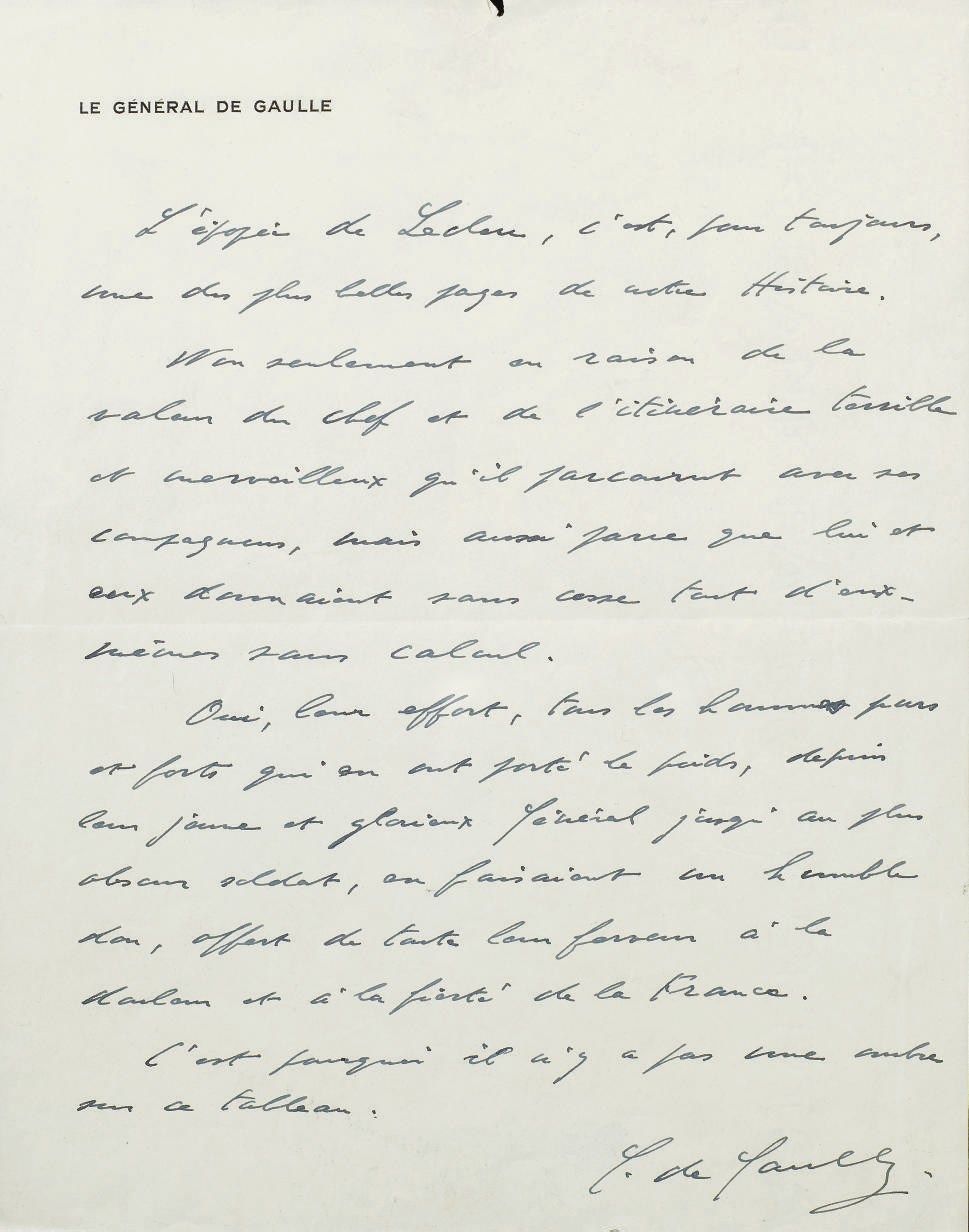 LE GÉNÉRAL DE GAULLE
L'épopée de Leclerc, c'est, pour toujours,
une des plus belles pages de notre Histoire.
Non seulement en raison de la
valeur du chef et de l'itinéraire terrible
et merveilleux qu'il parcourut avec ses
compagnons, mais aussi parce que lui et
eux donnaient sans cesse tout d'eux-
mêmes sans calcul.
Oui, leur effort, tous les hommes purs
et forts qui en ont porté le poids, depuis
leur jeune et glorieux Général jusqu'au plus
obscur soldat, en faisaient un humble
don, offert de toute leur ferveur à la
douleur et à la fierté de la France.
C'est pourquoi il n'y a pas une ombre
sur ce tableau.
C. de Gaulle.